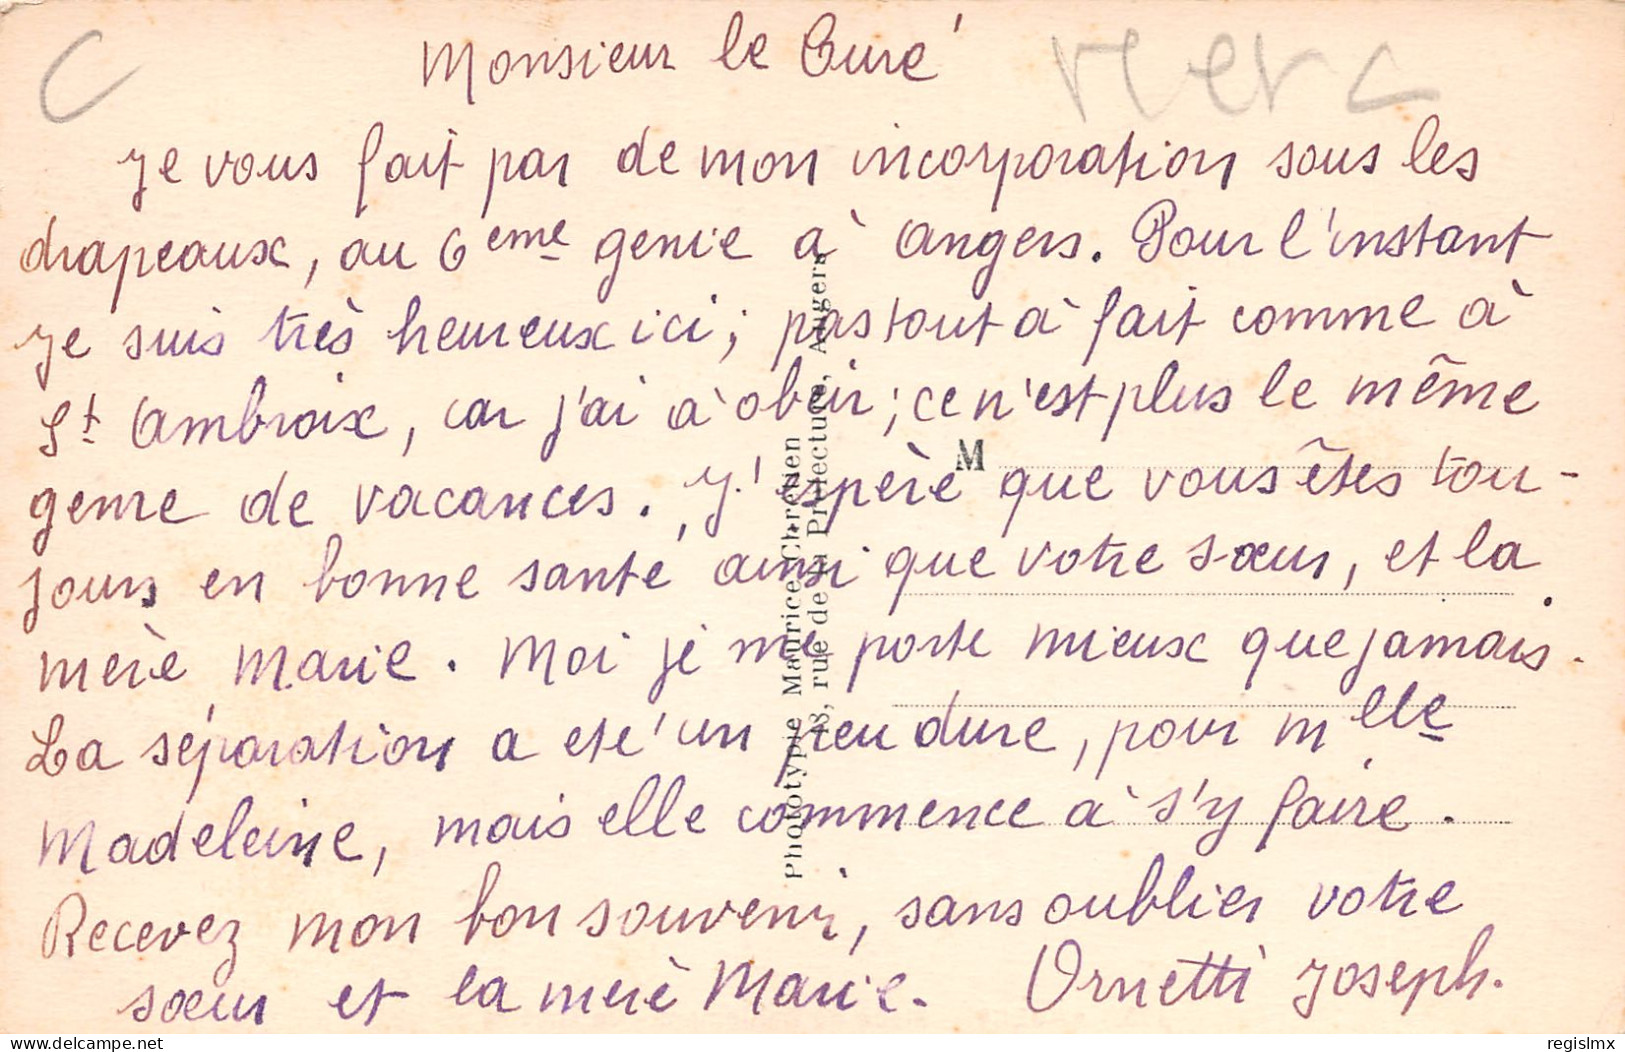 Monsieur le Curé
Je vous fait par de mon incorporation sous les
drapeaux, au 6eme genie à Angers. Pour l'instant
je suis très heureux ici; pas tout à fait comme à
St Ambroix, car j'ai à obeir; ce n'est plus le même
genre de vacances. J'espère que vous êtes tou-
jours en bonne santé ainsi que votre sœur, et la
mère Marie. Moi je me porte mieux que jamais.
La séparation a eté un peu dure, pour Mlle
Madeleine, mais elle commence à s'y faire.
Recevez mon bon souvenir, sans oublier votre
sœur et la merè Marie. Ornetti Joseph.
M
Phototypie Maurice Chrétien
rue de la Préfecture, Angers
delcampe.net
regislmx